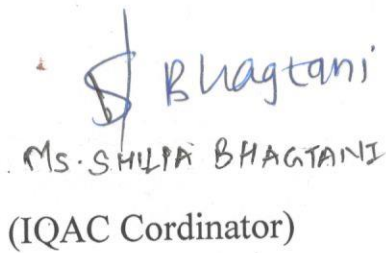 S Bhagtani
Ms. SHILPA BHAGTANI
(IQAC Cordinator)